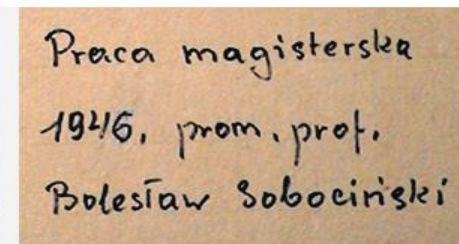 Praca magisterska
1946, prom. prof.
Bolesław Sobociński